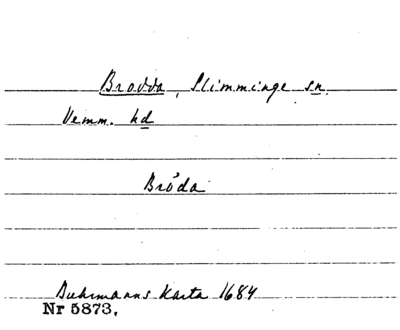 Brodda, Slimminge sn.
Vemm. hd
Bröda
Buhrmanns Karta 1684
Nr 5873.